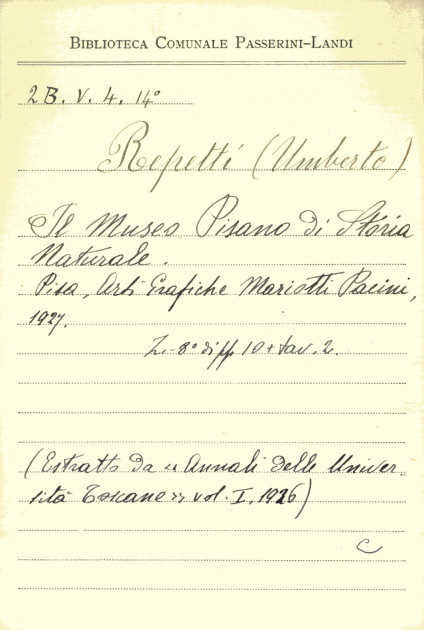 BIBLIOTECA COMUNALE PASSERINI-LANDI
2B. V. 4. 14º
Repetti (Umberto)
Il Museo Pisano di Storia
Naturale.
Pisa, Arti Grafiche Mariotti Pacini,
1927.
8º di pp. 10 + tav. 2.
(Estratto da «Annali delle Univer-
sità Toscane» vol. I, 1926)
C